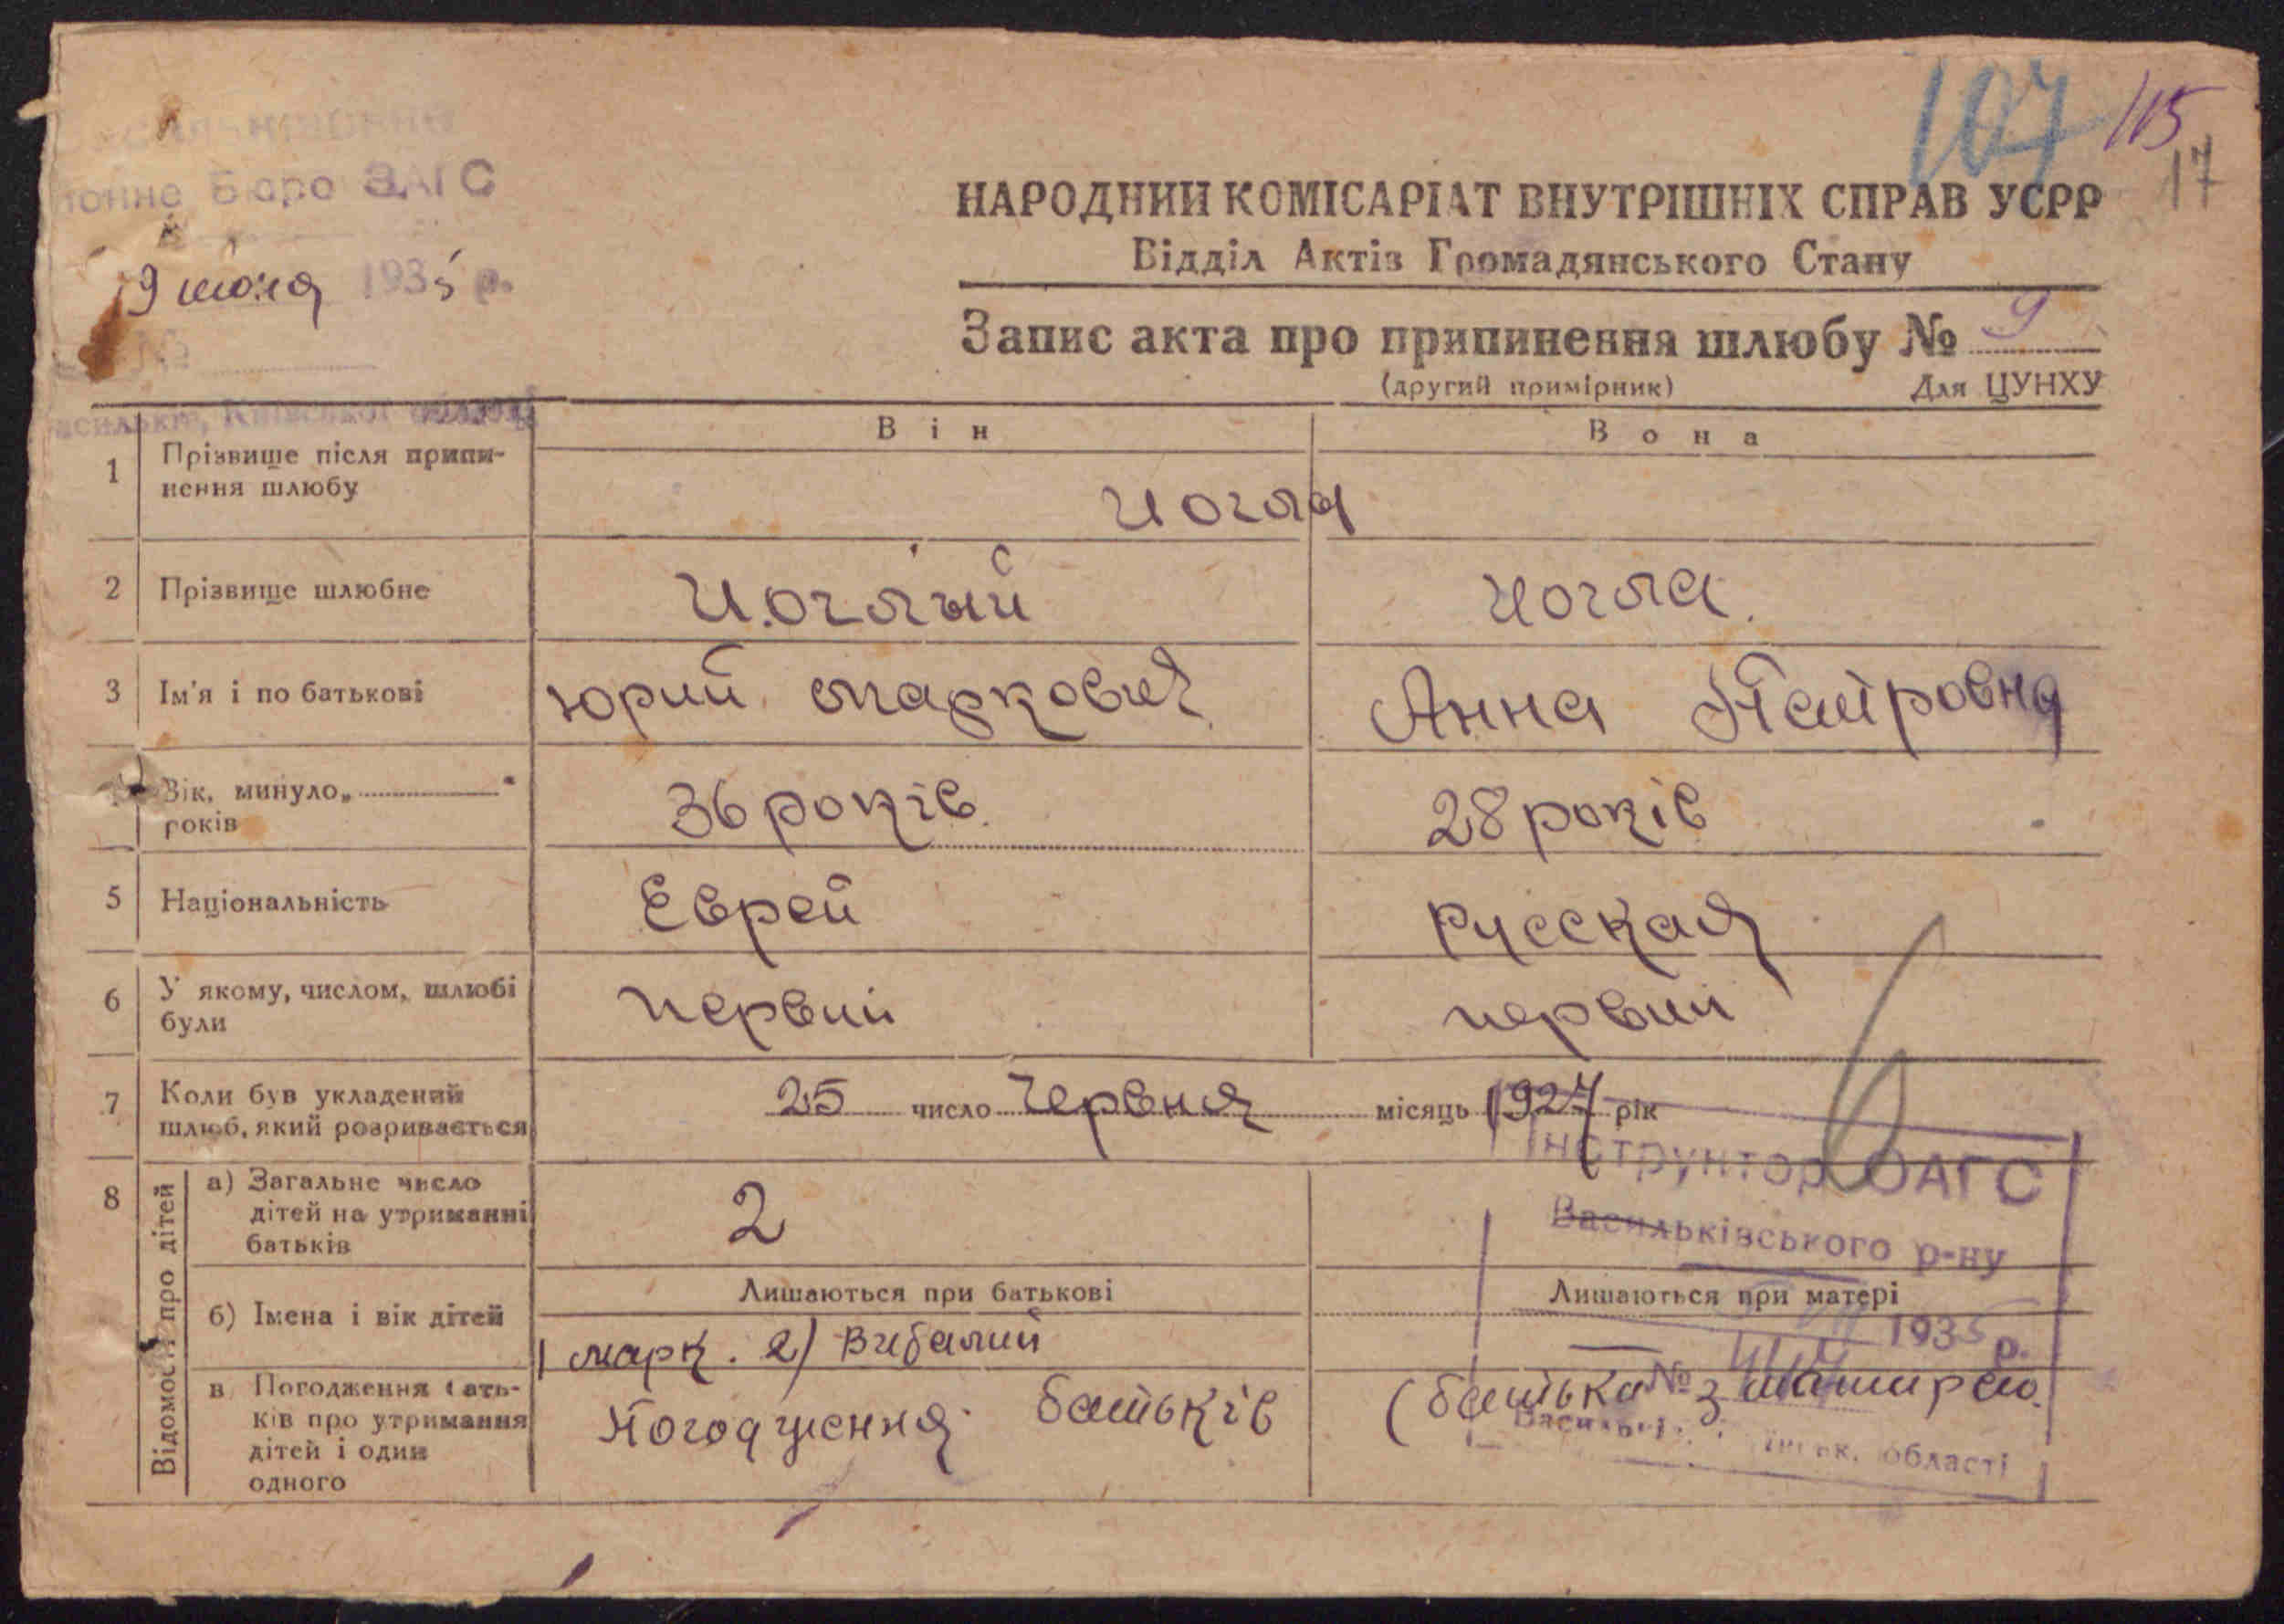 107 115
17
Бюро ЗАГС
НАРОДНИЙ КОМІСАРІАТ ВНУТРІШНІХ СПРАВ УСРР
Відділ Актів Громадянського Стану
9 июля 1935 р.
№
Запис акта про припинення шлюбу № 9
(другий примірник) Для ЦУНХУ
Київської області
Він Вона
1 Прізвище після припи-
нення шлюбу
Иогла
2 Прізвище шлюбне Иоглый Иогла.
3 Ім'я і по батькові Юрий Маркович Анна Петровна
Вік, минуло „ "
років
36 років 28 років
5 Національність Еврей Русская
6 У якому, числом, шлюбі
були
первий первий
7 Коли був укладений
шлюб, який розривається
25 число Червня місяць 1927 рік
Інструктор ОАГС
Васильківського р-ну
1935 р.
№
області
8 Відомості про дітей
а) Загальне число
дітей на утриманні
батьків
2
Лишаються при батькові Лишаються при матері
б) Імена і вік дітей
1 Марк. 2) Виталий —
в Погодження бать-
ків про утримання
дітей і один
одного
Погодження батьків (батька з матирею.